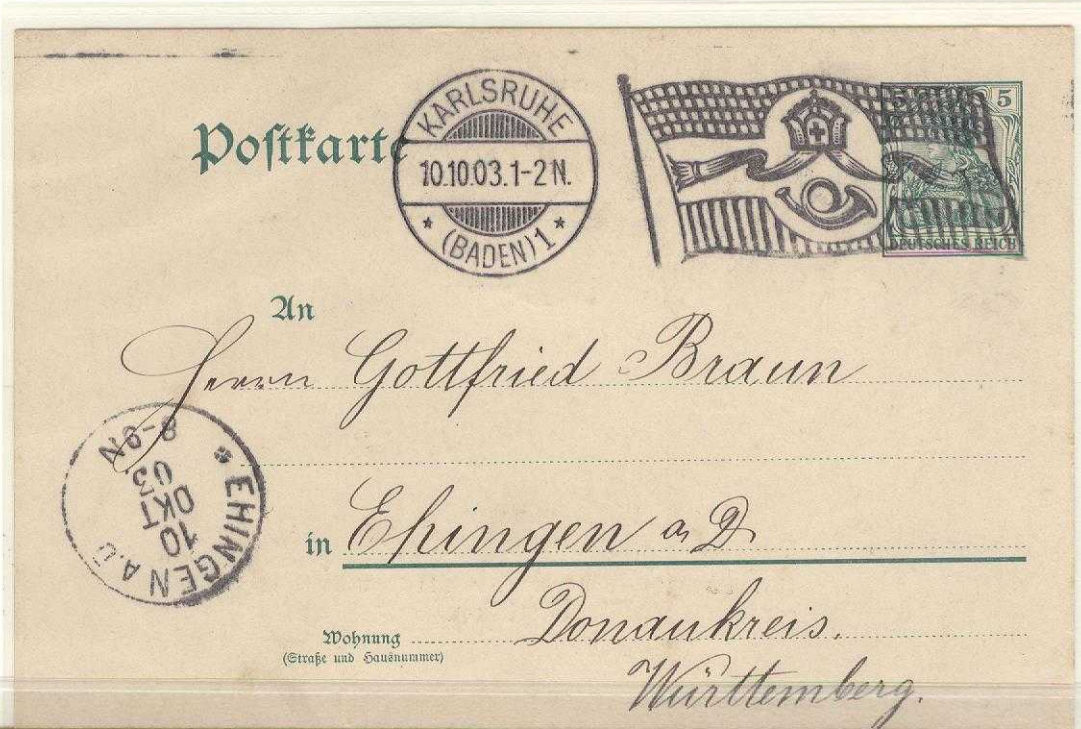 Postkarte
KARLSRUHE
10.10.03.1-2N.
* (BADEN) 1 *
5 5
DEUTSCHES REICH
An
Herrn Gottfried Braun
* EHINGEN A. D
10
OKT
03
8-9N.
in Ehingen a D
Donaukreis.
Wohnung
(Straße und Hausnummer)
Württemberg.